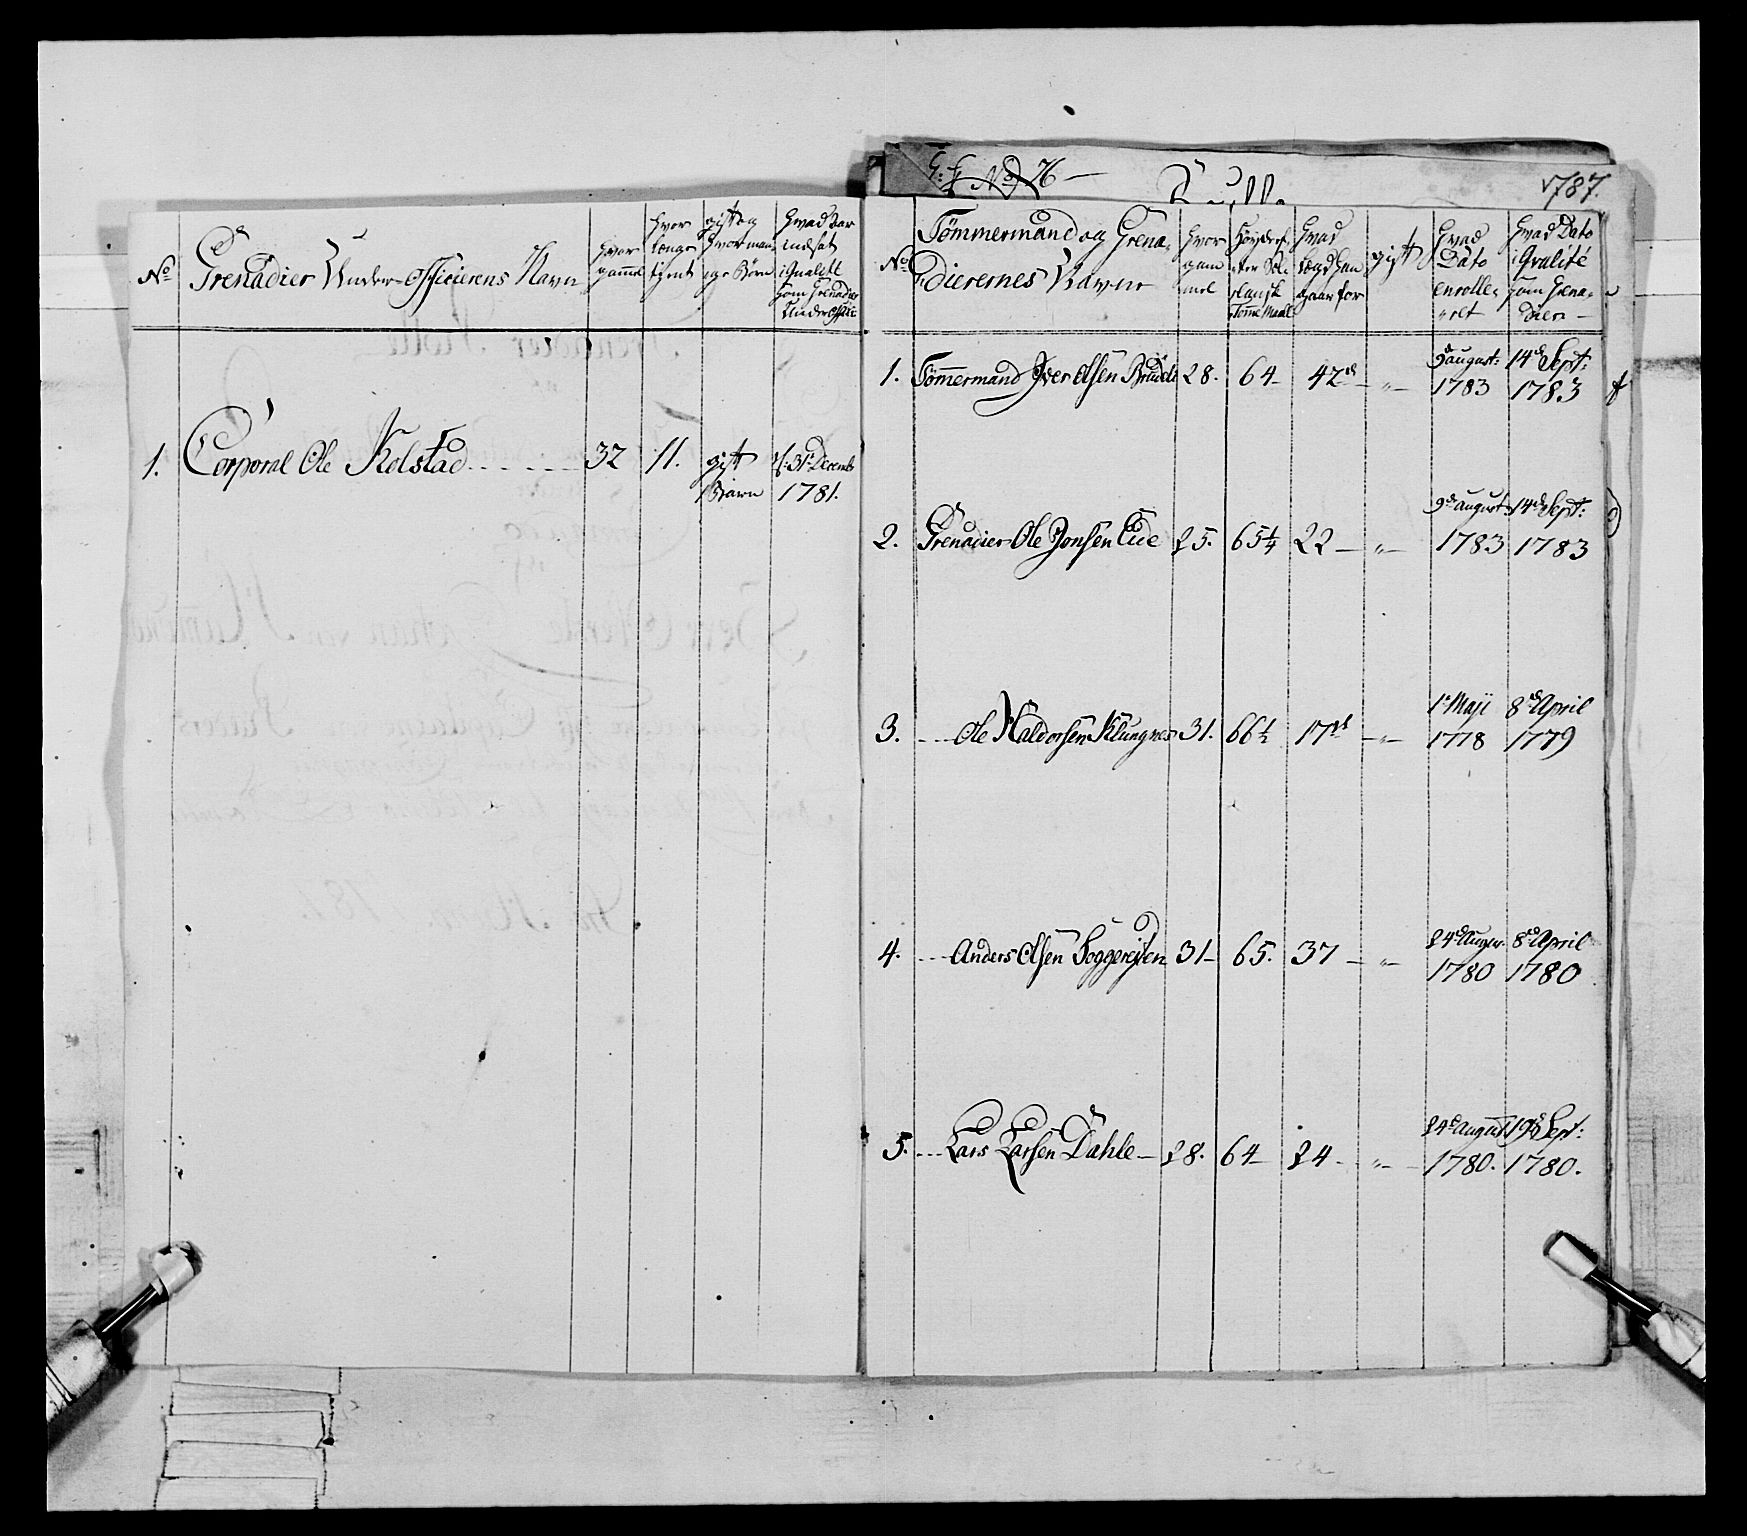 G: f No 76 —
1787.
No
Grenadier Under-Officierens Navn
hvor gammel
hvor længe tjent
gift og hvor mange Børn
Hvad Dato indsat i Qualite som Grenadier Under Offic:
1. Corporal Ole Kolstad 32 11. gift 1 Barn d: 31te Decembr 1781.
No
Tömmermand og Grenadierernes Navne
hvor gammel
Hvad Lægd han gaaer for
gift
Hvad Dato enrolleret
Hvad Dato i Qvalité som Grenadier
1. Tömmermand Iver Olsen 28. 64 42de „ 9d august: 1783 14de Sept: 1783
2. Grenadier Ole Jonsen Eide 25. 65¼ 22 „ 9de august 1783 14de Sept: 1783
3. Ole Haldorsen Klungnes 31. 66½ 17de „ 1te Maji 1778 8de April 1779
4. Anders Olsen 31 65. 37 „ 24de 1780 8de April 1780
5. Lars Larsen Dahle 28. 64 24 „ 24de august 1780. 19de Sept: 1780.